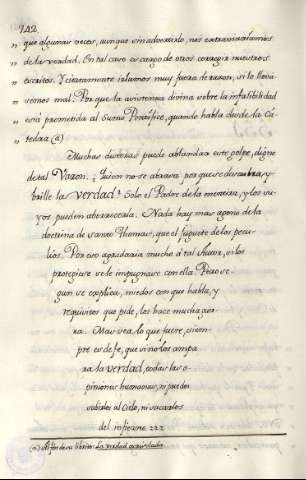 142
" que algunas veces, aunque sin advertirlo, nos extraviatalamos
" de la verdad. En tal caso es cargo de otros corregir nuestros
" escritos. Y ciertamente iriamos muy fuera de razon, si lo llevá-
" remos mal: Porque la asistencia divina sobre la infalibilidad
" está prometida al Sumo Pontifice, quando habla desde la Cá-
" tedra (a)
Muchas durezas puede ablandar este golpe, digno
de tal Varon. ¿Quien no se abrasa por que se descubra, y
brille la verdad? Solo el Padre de la mentira, y los su-
yos pueden aborrecerla. Nada hay mas ageno de la
doctrina de santo Thomas, que el juguete de los pecu-
lios. Por eso agradaria mucho á tal Autor, si los
protegiese se le impugnase con ella. Pero se-
gun se explica, miedos con que habla, y
requisitos que pide, les hace mucha guer-
ra. Mas sea lo que fuere, siem-
pre es de fe, que si no los ampa
ra la verdad, todas las o-
piniones humanas, ni pueden
subirles al Cielo, ni sacarlos
del infierno 222
(a) Al fin de su librito: La verdad acrisolada